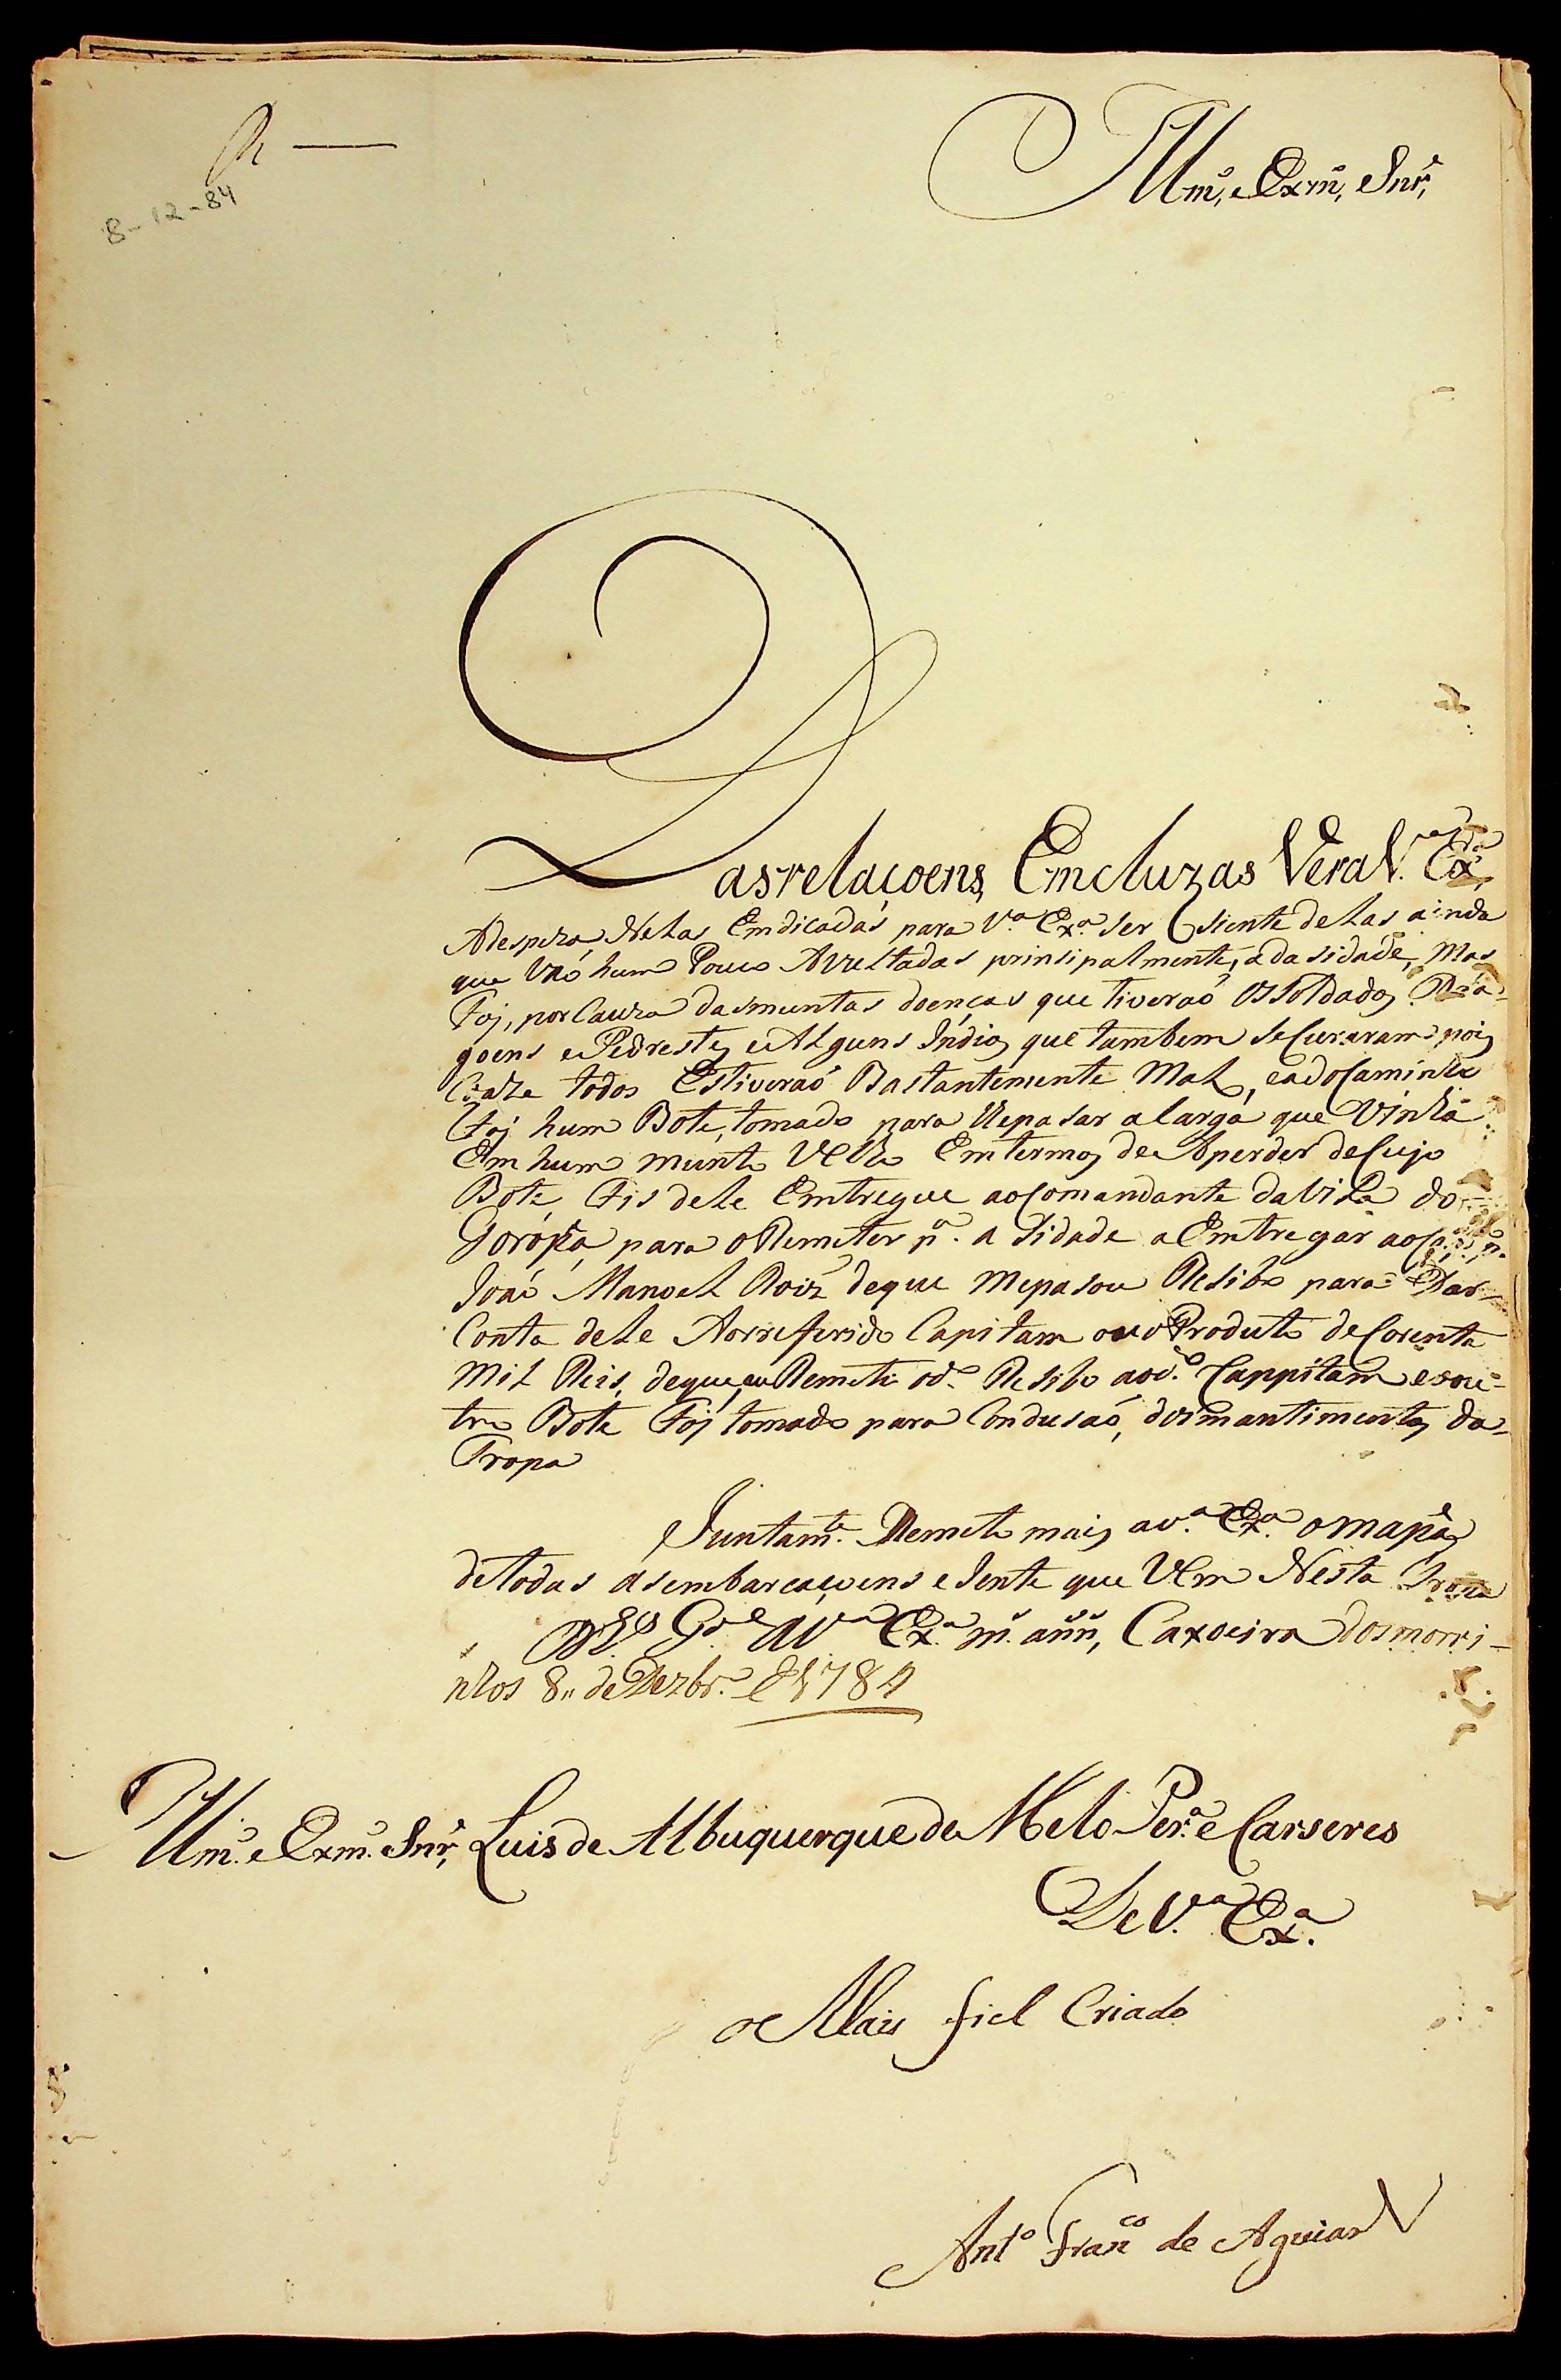 8-12-84
Illm.º, e Exm.º, Snr.,
Das relaçoens, Emcluzas Vera V.ª Ex.ª
Adespeza, Nelas Emdicadas para V.ª Ex.ª ser Siente delas ainda
que Vaó hum Pouco Avultadas prinsipalmente, a da sidade, Mas
Foj, por Cauza das muntas doenças que tiveraó Os Soldados Dra-
goens e Pedrestes e Alguns Índios que tambem se Curaram pois
Caze todos Estiveraó Bastantemente Mal, e a do Caminho
Foj hum Bote, tomado para Repasar a Carga que Vinha
Em hum munto Velho Em termos de Aperder de Cujo
Bote, Fis dele Emtregue ao Comandante da Vila do
Gorópá, para o Remeter p.ª a Sidade a Emtregar ao Cap.m
Joaó Manoel Roiz de que me pasou Resibo para Dar-
Conta dele Aorreferido Capitam ou o Produto de Corenta
Mil Reis, de que, eu Remeti o d.º Resibo ao d.º Cappitam e o ou-
tro Bote Foj tomado para Condusaó, dos mantimentos da-
Tropa
Juntam.te Remeto mais a V.ª Ex.ª o mapa
de todas as embarcaçoens e Jente que Vem Nesta Tropa
D.s G.de a V.ª Ex.ª m.s ann.s, Caxoeira dos morri-
nhos 8,, de Dezbr.º de 1784
Illm.º e Exm.º Snr., Luis de Albuquerque de Melo Per.ª e Carseres
De V.ª Ex.ª
o Mais fiel Criado
Ant.º Fran.co de Aguiar